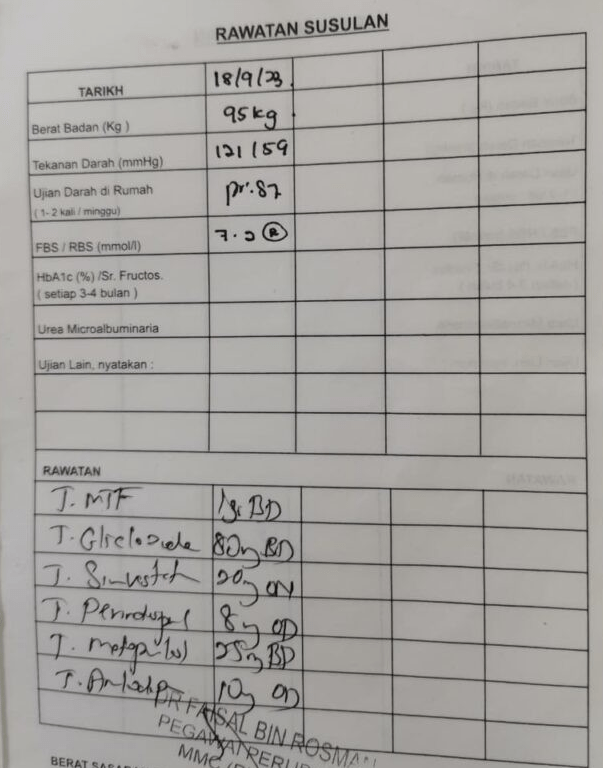 RAWATAN SUSULAN
TARIKH 18/9/23
Berat Badan (Kg ) 95kg
Tekanan Darah (mmHg) 121/59
Ujian Darah di Rumah pr:87
( 1- 2 kali / minggu)
FBS / RBS (mmol/l) 7.2 Ⓡ
HbA1c (%) /Sr. Fructos.
( setiap 3-4 bulan )
Urea Microalbuminaria
Ujian Lain, nyatakan :
RAWATAN
T. MTF 1g BD
T. Gliclazide 80mg BD
T. Simvastatin 20mg ON
T. Perindopril 8mg OD
T. metoprolol 25mg BD
T. Amlodip 10mg OD
DR FAISAL BIN ROSMAN
PEGAWAI PERUB
MMC